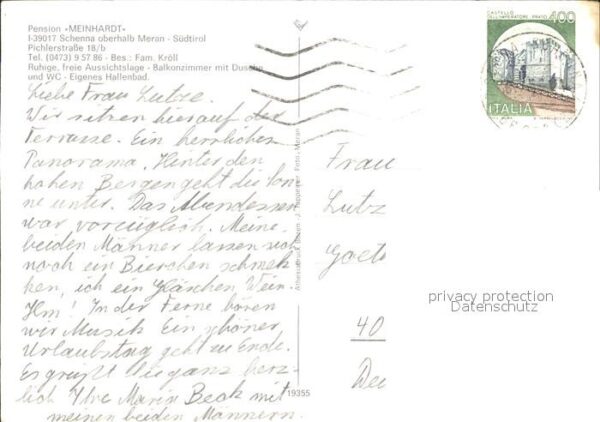 Pension «MEINHARDT»
I-39017 Schenna oberhalb Meran - Südtirol
Pichlerstraße 18/b
Tel. (0473) 9 57 86 - Bes.: Fam. Kröll
Ruhige, freie Aussichtslage - Balkonzimmer mit Dusche
und WC - Eigenes Hallenbad.
Liebe Frau Lutze.
Wir sitzen hier auf der
Terrasse. Ein herrliches
Panorama. Hinter den
hohen Bergen geht die Son
ne unter. Das Abendessen
war vorzüglich. Meine
beiden Männer lassen sich
noch ein Bierchen schmek
ken, ich ein Gläschen Wein.
Hm! In der Ferne hören
wir Musik. Ein schöner
Urlaubstag geht zu Ende.
Es grüßt Sie ganz herz-
lich Ihre Maria Beck mit
meinen beiden Männern.
19355
Foto: Meran
CASTELLO
DELL'IMPERATORE - PRATO
400
ITALIA
Frau
Lutz
Goet
40
Deu
privacy protection
Datenschutz